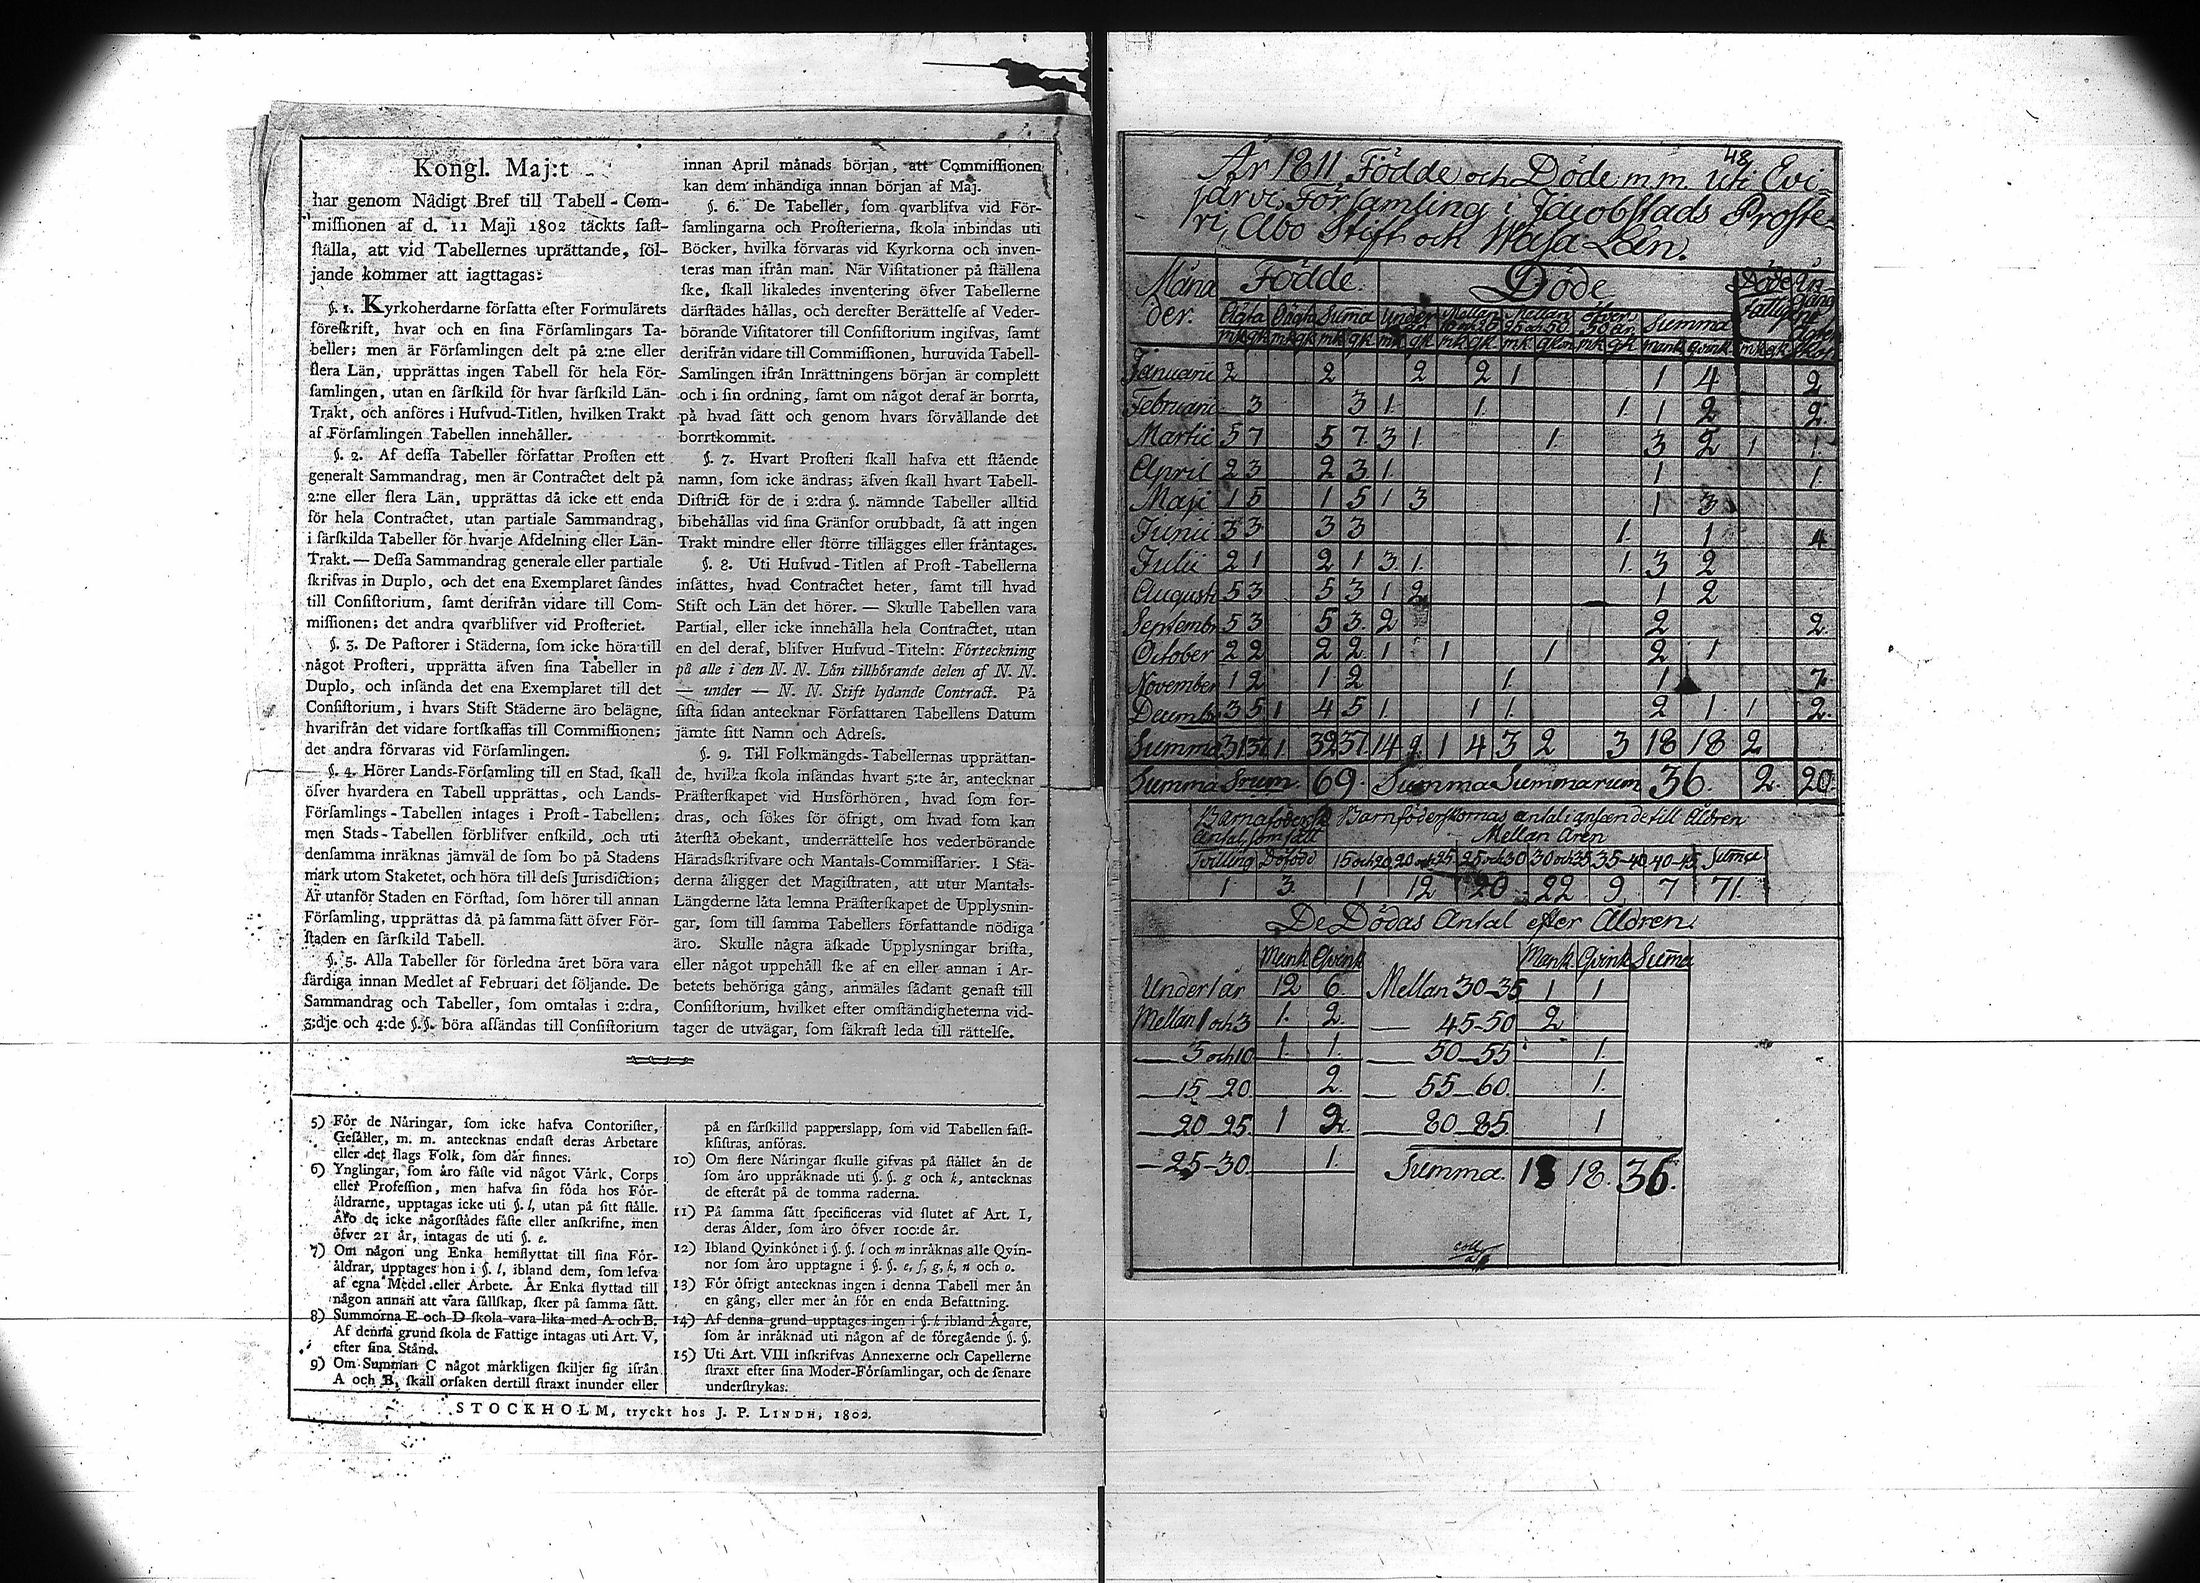 Kongl. Maj:t
har genom Nådigt Bref till Tabell-Com-
missionen af d. 11 Maji 1802 täckts fast-
ställa, att vid Tabellernes uprättande, föl-
jande kommer att iagttagas:
§. 1. Kyrkoherdarne författa efter Formulärets
föreskrift, hvar och en sina Församlingars Ta-
beller; men är Församlingen delt på 2:ne eller
flera Län, upprättas ingen Tabell för hela För-
samlingen, utan en särskild för hvar särskild Län-
Trakt, och anföres i Hufvud-Titlen, hvilken Trakt
af Församlingen Tabellen innehåller.
§. 2. Af dessa Tabeller författar Prosten ett
generalt Sammandrag, men är Contractet delt på
2:ne eller flera Län, upprättas då icke ett enda
för hela Contractet, utan partiale Sammandrag,
i särskilda Tabeller för hvarje Afdelning eller Län-
Trakt. — Dessa Sammandrag generale eller partiale
skrifvas in Duplo, och det ena Exemplaret sändes
till Consistorium, samt derifrån vidare till Com-
missionen; det andra qvarblifver vid Prosteriet.
§. 3. De Pastorer i Städerna, som icke höra till
något Prosteri, upprätta äfven sina Tabeller in
Duplo, och insända det ena Exemplaret till det
Consistorium, i hvars Stift Städerne äro belägne,
hvarifrån det vidare fortskaffas till Commissionen;
det andra förvaras vid Församlingen.
§. 4. Hörer Lands-Församling till en Stad, skall
öfver hvardera en Tabell upprättas, och Lands-
Församlings-Tabellen intages i Prost-Tabellen;
men Stads-Tabellen förblifver enskild, och uti
densamma inräknas jämväl de som bo på Stadens
mark utom Staketet, och höra till dess Jurisdiction;
Är utanför Staden en Förstad, som hörer till annan
Församling, upprättas då på samma sätt öfver För-
staden en särskild Tabell.
§. 5. Alla Tabeller för förledna året böra vara
färdiga innan Medlet af Februari det följande. De
Sammandrag och Tabeller, som omtalas i 2:dra,
3:dje och 4:de §.§. böra afsändas till Consistorium
innan April månads början, att Commissionen
kan dem inhändiga innan början af Maj.
§. 6. De Tabeller, som qvarblifva vid För-
samlingarna och Prosterierna, skola inbindas uti
Böcker, hvilka förvaras vid Kyrkorna och inven-
teras man ifrån man. När Visitationer på ställena
ske, skall likaledes inventering öfver Tabellerne
därstädes hållas, och derefter Berättelse af Veder-
börande Visitatorer till Consistorium ingifvas, samt
derifrån vidare till Commissionen, huruvida Tabell-
Samlingen ifrån Inrättningens början är complett
och i sin ordning, samt om något deraf är borrta,
på hvad sätt och genom hvars förvållande det
borrtkommit.
§. 7. Hvart Prosteri skall hafva ett stående
namn, som icke ändras; äfven skall hvart Tabell-
District för de i 2:dra §. nämnde Tabeller alltid
bibehållas vid sina Gränsor orubbadt, så att ingen
Trakt mindre eller större tillägges eller fråntages.
§. 8. Uti Hufvud-Titlen af Prost-Tabellerna
insättes, hvad Contractet heter, samt till hvad
Stift och Län det hörer. — Skulle Tabellen vara
Partial, eller icke innehålla hela Contractet, utan
en del deraf, blifver Hufvud-Titeln: Förteckning
på alle i den N. N. Län tillhörande delen af N. N.
— under — N. N. Stift lydande Contract. På
sista sidan antecknar Författaren Tabellens Datum
jämte sitt Namn och Adress.
§. 9. Till Folkmängds-Tabellernas upprättan-
de, hvilka skola insändas hvart 5:te år, antecknar
Prästerskapet vid Husförhören, hvad som for-
dras, och sökes för öfrigt, om hvad som kan
återstå obekant, underrättelse hos vederbörande
Häradsskrifvare och Mantals-Commissarier. I Stä-
derna åligger det Magistraten, att utur Mantals-
Längderne låta lemna Prästerskapet de Upplysnin-
gar, som till samma Tabellers författande nödiga
äro. Skulle några äskade Upplysningar brista,
eller något uppehåll ske af en eller annan i Ar-
betets behöriga gång, anmäles sådant genast till
Consistorium, hvilket efter omständigheterna vid-
tager de utvägar, som säkrast leda till rättelse.
5) För de Näringar, som icke hafva Contorister,
Gesäller, m. m. antecknas endast deras Arbetare
eller det slags Folk, som där finnes.
6) Ynglingar, som äro fäste vid något Värk, Corps
eller Profession, men hafva sin föda hos För-
äldrarne, upptagas icke uti §. l, utan på sitt ställe.
Äro de icke någorstädes fäste eller anskrifne, men
öfver 21 år, intagas de uti §. e.
7) Om någon ung Enka hemflyttat till sina För-
äldrar, upptages hon i §. l, ibland dem, som lefva
af egna Medel eller Arbete. Är Enka flyttad till
någon annan att vara sällskap, sker på samma sätt.
8) Summorna E och D skola vara lika med A och B.
Af denna grund skola de Fattige intagas uti Art. V,
efter sina Stånd.
9) Om Summan C något märkligen skiljer sig ifrån
A och B, skall orsaken dertill straxt inunder eller
på en särskilld papperslapp, som vid Tabellen fast-
klistras, anföras.
10) Om flere Näringar skulle gifvas på stället än de
som äro uppräknade uti §. §. g och k, antecknas
de efteråt på de tomma raderna.
11) På samma sätt specificeras vid slutet af Art. I,
deras Ålder, som äro öfver 100:de år.
12) Ibland Qvinkönet i §. §. l och m inräknas alle Qvin-
nor som äro upptagne i §. §. e, f, g, k, n och o.
13) För öfrigt antecknas ingen i denna Tabell mer än
en gång, eller mer än för en enda Befattning.
14) Af denna grund upptages ingen i §. k ibland Ägare,
som är inräknad uti någon af de föregående §. §.
15) Uti Art. VIII inskrifvas Annexerne och Capellerne
straxt efter sina Moder-Församlingar, och de senare
understrykas.
STOCKHOLM, tryckt hos J. P. LINDH, 1802.
48
År 1811 Födde och Döde m.m. uti Evi-
järvi Församling i Jacobstads Proste-
ri, Åbo Stift och Wasa Län.
Måna der. Födde. Döde
Ägta Oägta Suma Under Mellan 10 och 25 Mellan 25 och 50 öfver 50 år Summa
mk qk mk qk mk qk mk qk mk qk mk qkön mk qk mank qvink mk qk
Januarii 2 2 2 2 1 1 4 2
Februarii 3 3 1. 1. 1. 1 2 2.
Martii 5 7 5 7 3 1 1. 3 2 1 1.
April 2 3 2 3 1 1 1.
Maji 1 5 1 5 1 3 1 3
Junii 3 3 3 3 1. 1 4
Julii 2 1 2 1 3 1. 1. 3 2
Augusti 5 3 5 3 1 2 1 2
Septembr 5 3 5 3. 2 2 2
October 2 2 2 2 1 1 1 2 1
November 1 2 1 2 1. 1 7.
Decembr 3 5 1 4 5 1. 1 1. 2 1. 1 2.
Summa 31 37 1 32 37 14 9 1 4 3 2 3 18 18 2
Summa Srum. 69. Summa Summarum 36. 2. 20.
Barnaföderskornas antal i anseende till Åldren
antal, som fått Mellan åren
Tvilling Dödfödd 15 och 20 20 och 25 25 och 30 30 och 35 35-40 40-45 Suma
1. 3. 1 12 20 22 9 7 71.
De Dödas Antal efter Åldren.
Mank Qvink Mank Qvink Suma
Under 1 år 12 6. Mellan 30-35 1 1
Mellan 1 och 3 1. 2. — 45-50 2
— 5 och 10 1. 1. — 50-55 1.
— 15-20 2. — 55-60. 1.
— 20-25. 1 2. — 80-85 1
— 25-30. 1. Summa. 18 18. 36.